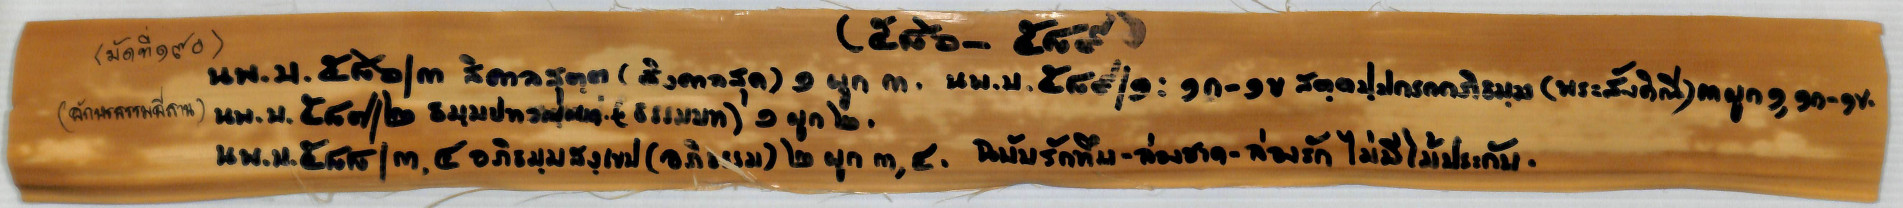 (๕๘๖ - ๕๘๙)
(มัดที่ ๑๙๐)
นพ.บ. ๕๘๖/๓ สิคาลสุตฺต (สิงคาลสุต) ๑ ผูก ๓. นพ.บ. ๕๘๙/๑: ๑ก-๑ข สตฺตปฺปกรณาภิธมฺม (พระสังคิณี) ๓ ผูก ๑, ๑ก-๑ข.
(อักษรธรรมอีสาน) นพ.บ. ๕๘๗/๒ ธมฺมปท (ธรรมบท) ๑ ผูก ๒.
นพ.บ. ๕๘๘/๓, ๔ อภิธมฺมสงฺเขป (อภิธรรม) ๒ ผูก ๓, ๔. ฉบับรักทึบ-ล่องชาด-ล่องรัก ไม่มีไม้ประกับ.